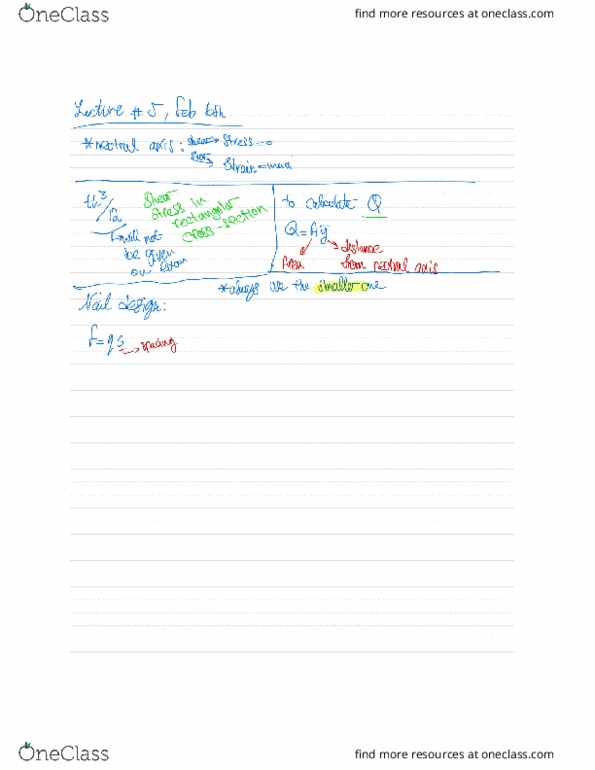 OneClass
find more resources at oneclass.com
Lecture # 5, Feb 6th
* neutral axis: Stress = 0
Strain = max
th³/12
I will not
be given
on Exam
Shear
stress in
rectangular
cross-section
to calculate Q
Q = Aȳ
Area
distance
from neutral axis
* always use the smaller one
Nail design:
F = q s
spacing
OneClass
find more resources at oneclass.com